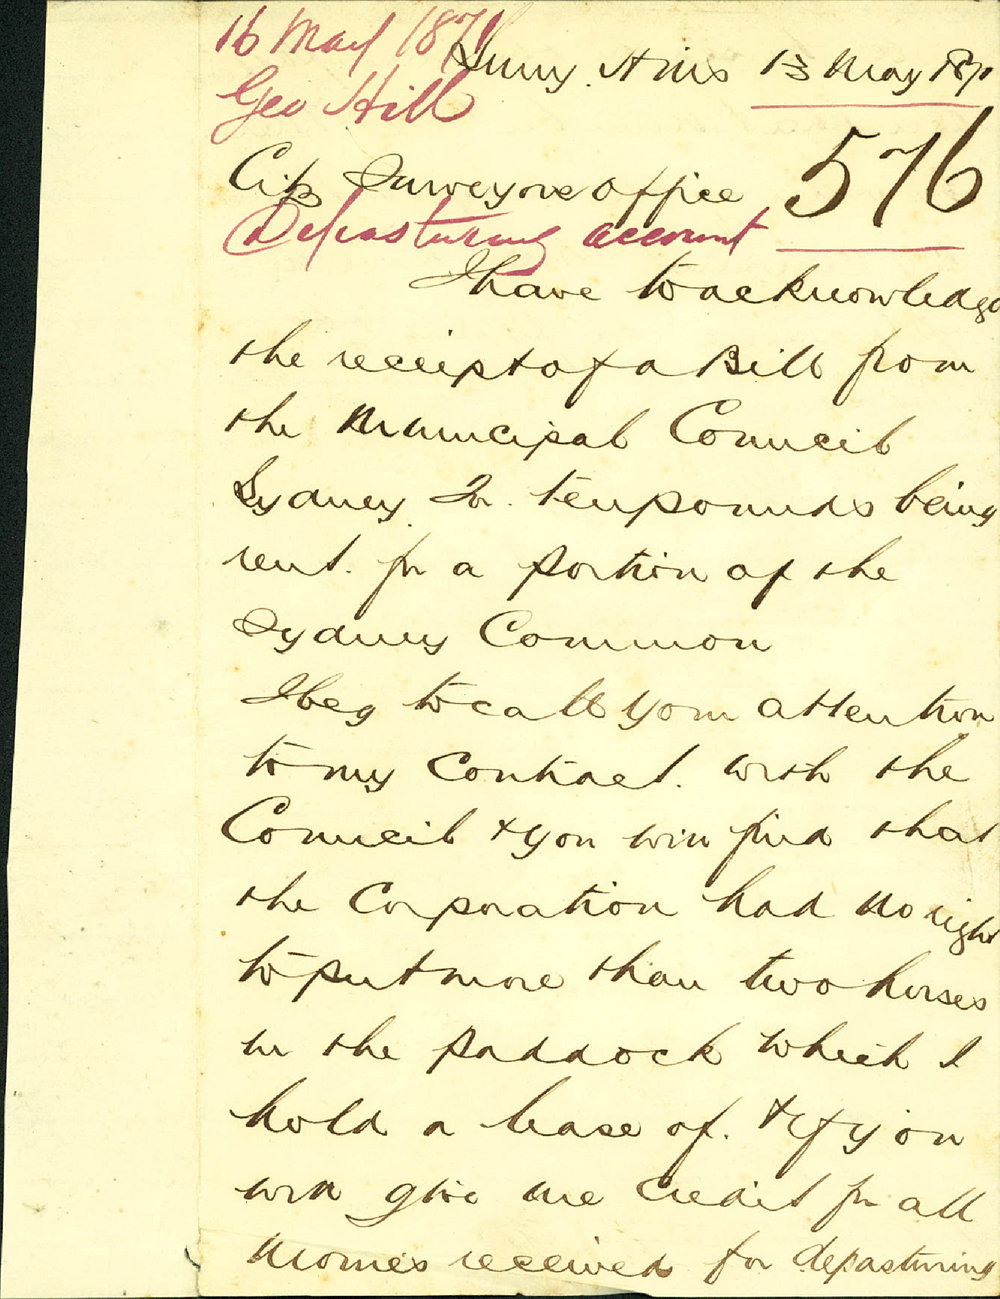 16 May 1871
Surry Hills 13 May 1871
Geo Hill
576
City Surveyors office
Depasturing account
I have to acknowledge
the receipt of a Bill from
the Municipal Council
Sydney for ten pounds being
rent. for a portion of the
Sydney Common
I beg to call your attention
to my Contract. with the
Council & you will find that
the Corporation had no right
to put more than two horses
in the paddock which I
hold a lease of. & if you
will give me credit for all
Monies received for depasturing